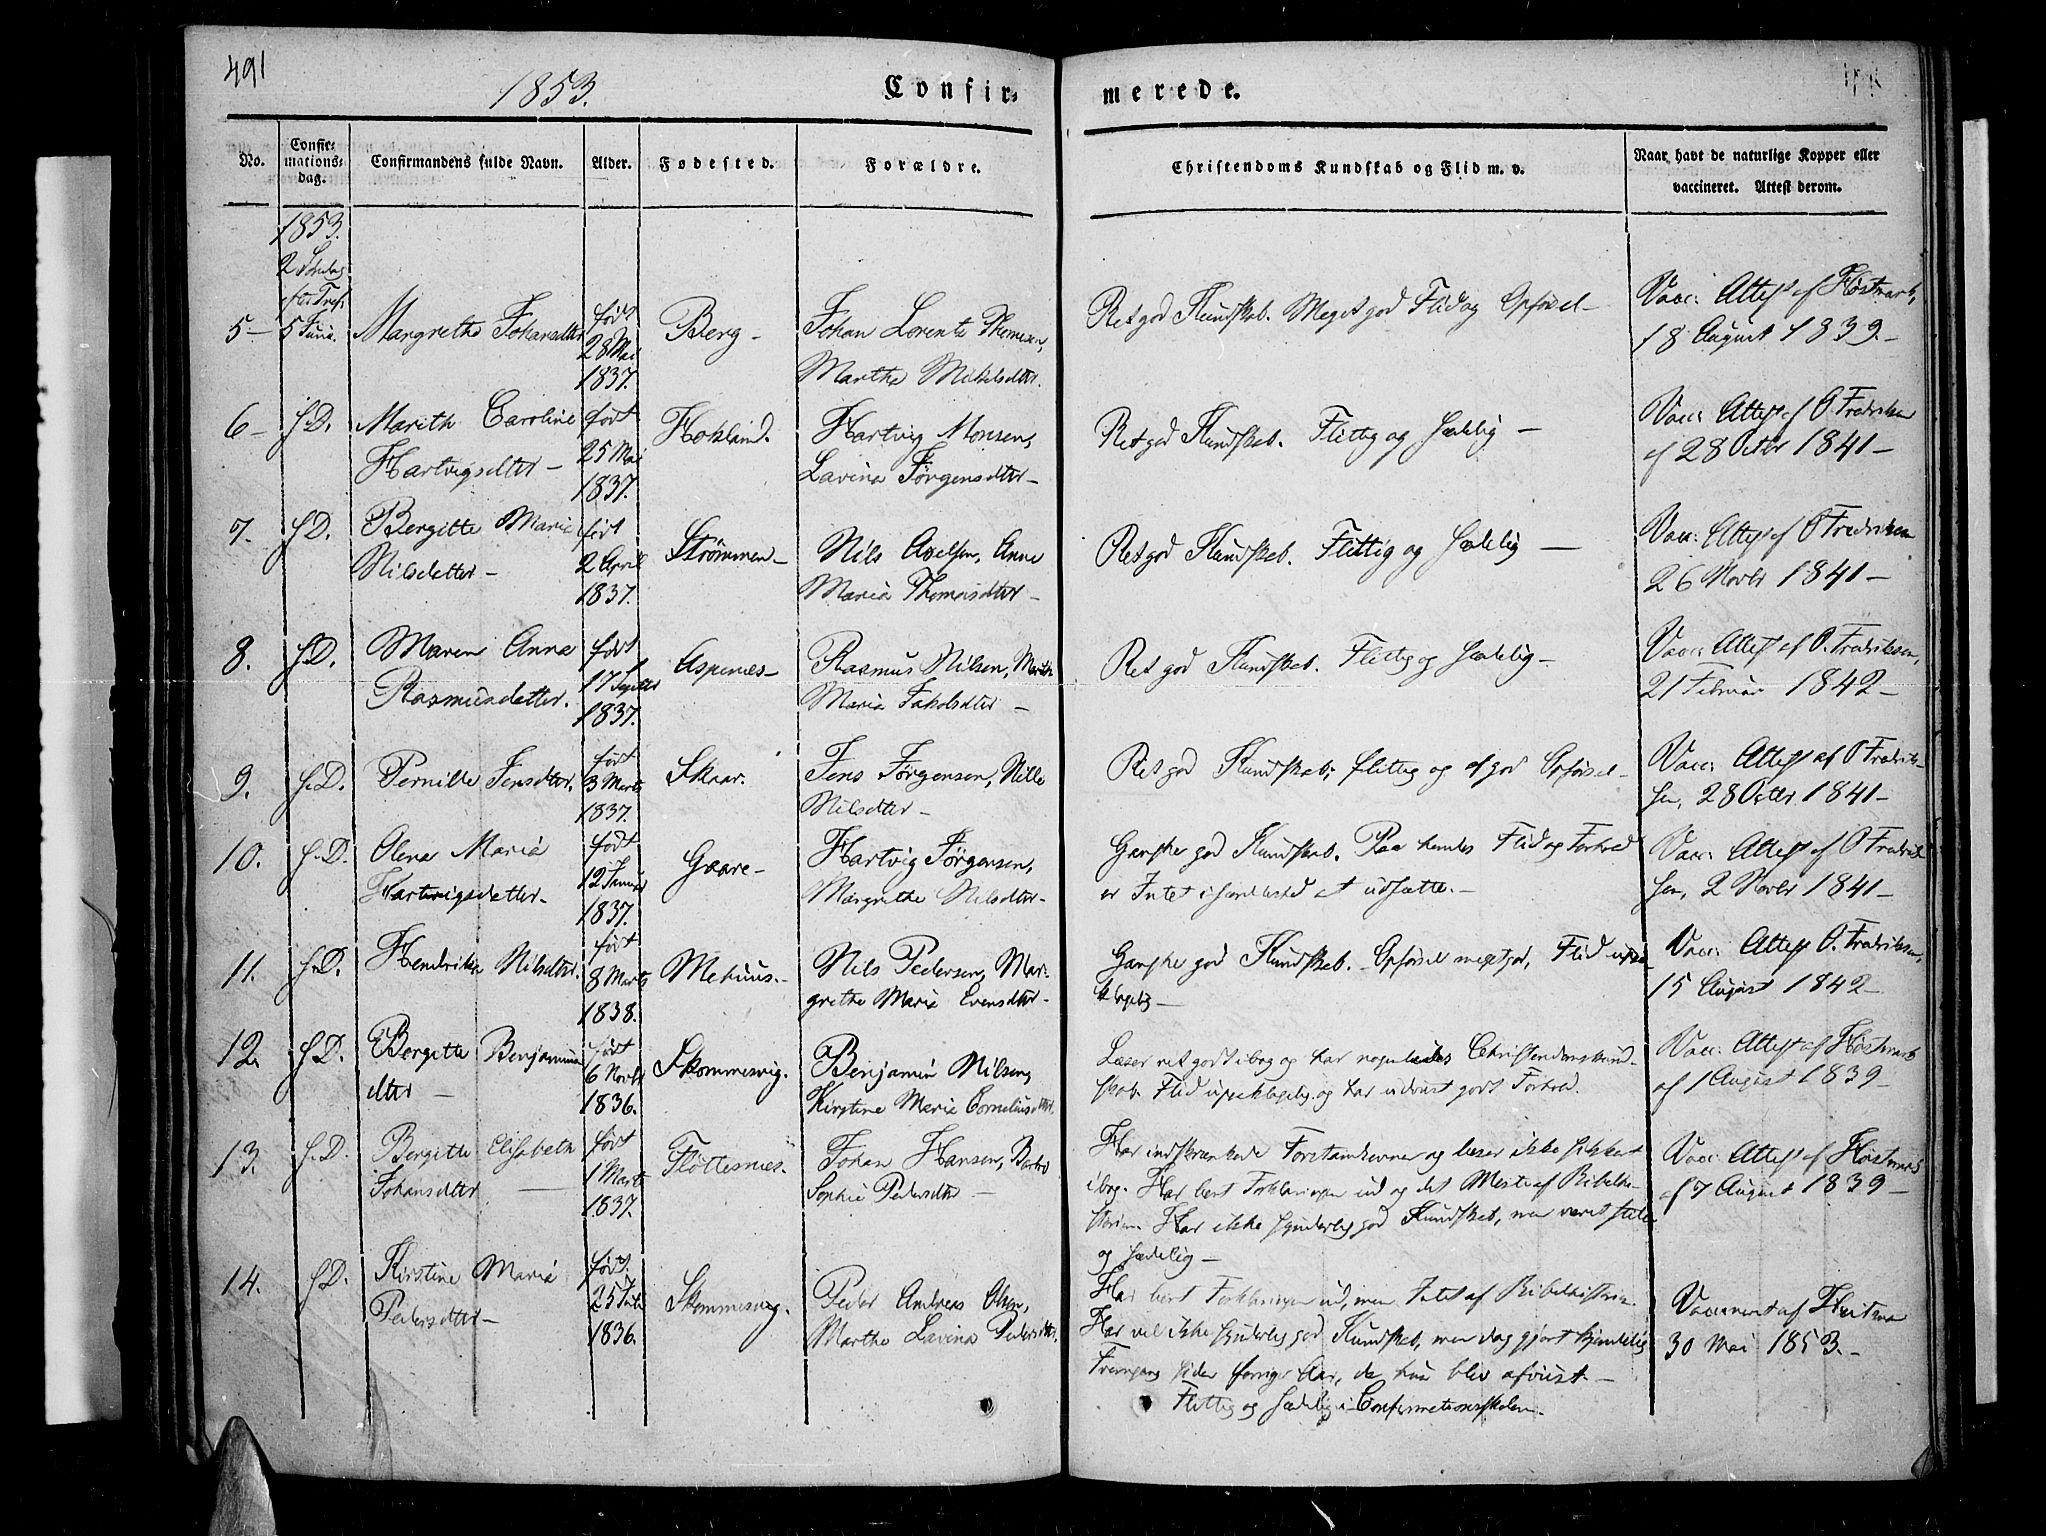 491
1853.
Confir-
merede.
No.
Confir-
mations-
dag.
Confirmandens fulde Navn.
Alder.
Fødested.
Forældre.
Christendoms Kundskab og Flid m. v.
Naar havt de naturlige Kopper eller
vaccineret. Attest derom.
1853.
2 Søndag
5 Juni.
5 -
Margrethe Johansdtter
født
28 Mai
1837.
Berg -
Johan Lorents Thomesen,
Marthe Mikelsdtter.
Ret god Kundskab. Meget god Flid og Opførsel -
Vacc: Attest af Høstmark,
18 August 1839. -
6 -
s.D.
Marith Caroline
Hartvigsdtter -
født
25 Mai
1837.
Hokland.
Hartvig Monsen,
Lavina Jørgensdtter -
Ret god Kundskab. Flittig og Sædelig -
Vacc: Attest af O. Fredriksen
af 28 Octbr 1841 -
7.
s.D.
Bergitte Maria
Nilsdetter -
født
2 April
1837.
Strømmen -
Nils Axelsen, Anne
Maria Thomasdtter -
Ret god Kundskab. Flittig og Sædelig -
Vacc: Attest af O Fredriksen
26 Novbr 1841 -
8.
s.D.
Maren Anna
Rasmusdetter.
født
17 Septbr
1837.
Aspenes -
Rasmus Nilsen, Marith
Maria Jakobsdtter -
Ret god Kundskab. Flittig og Sædelig -
Vacc: Attest af O. Fredriksen,
21 Februar 1842 -
9.
s.D.
Pernille Jensdtter.
født
3 Marts
1837.
Skaar.
Jens Jørgensen, Nille
Nilsdtter -
Ret god Kundskab, flittig og af god Opførsel -
Vacc: Attest af O Fredrik-
sen, 28 Octbr 1841 -
10.
s.D.
Olena Maria
Hartvigsdetter -
født
12 Januar
1837.
Gaare -
Hartvig Jørgensen,
Margrethe Nilsdtter -
Ganske god Kundskab. Paa hendes Flid og Forhold
er Intet i Særdeleshed at udsætte. -
Vacc: Attest af O Fredrik-
sen, 2 Novbr 1841 -
11.
s.D.
Hendrikke Nilsdtter.
født
8 Marts
1838.
Nils Pedersen, Mar-
grethe Maria Evensdtter -
Ganske god Kundskab. Opførsel meget god, Flid upaa-
klagelig -
Vacc: Attest O. Fredriksen,
15 August 1842 -
12.
s.D.
Bergitte Benjamins
dtter -
født
6 Novbr
1836.
Skommesvig.
Benjamin Nilsen,
Kirstine Maria Corneliusdtter.
Læser ret godt i bog og har nogenledes Christendomskund-
skab. Flid upaaklagelig og har udvist godt Forhold.
Vacc: Attest af Høstmark
af 1 August 1839 -
13.
s.D.
Bergitte Elisabeth
Johansdtter -
født
1 Marts
1837.
Fløttesnes.
Johan Hansen,
Sophie Pedersdtter -
Har indskrænkede Forstandsevner og læser ikke sikkert
i bog. Har lært Forklaringen ud og det Meste af Bibelhi-
storien. Har ikke synderlig god Kundskab, men været stille
og Sædelig -
Vacc: Attest af Høstmark
af 7 August 1839 -
14.
s.D.
Kirstine Maria
Pedersdtter -
født
25 Juli
1836.
Skommesvig.
Peder Andreas Olsen,
Marthe Lavina Pedersdtter.
Har lært Forklaringen ud, men Intet af Bibelhistorien.
Har vel ikke synderlig god Kundskab, men dog gjort kjendelig
Fremgang siden forrige Aar, da hun blev afviist. -
Flittig og Sædelig i Confirmationsskolen. -
Vaccineret af
30 Mai 1853. -